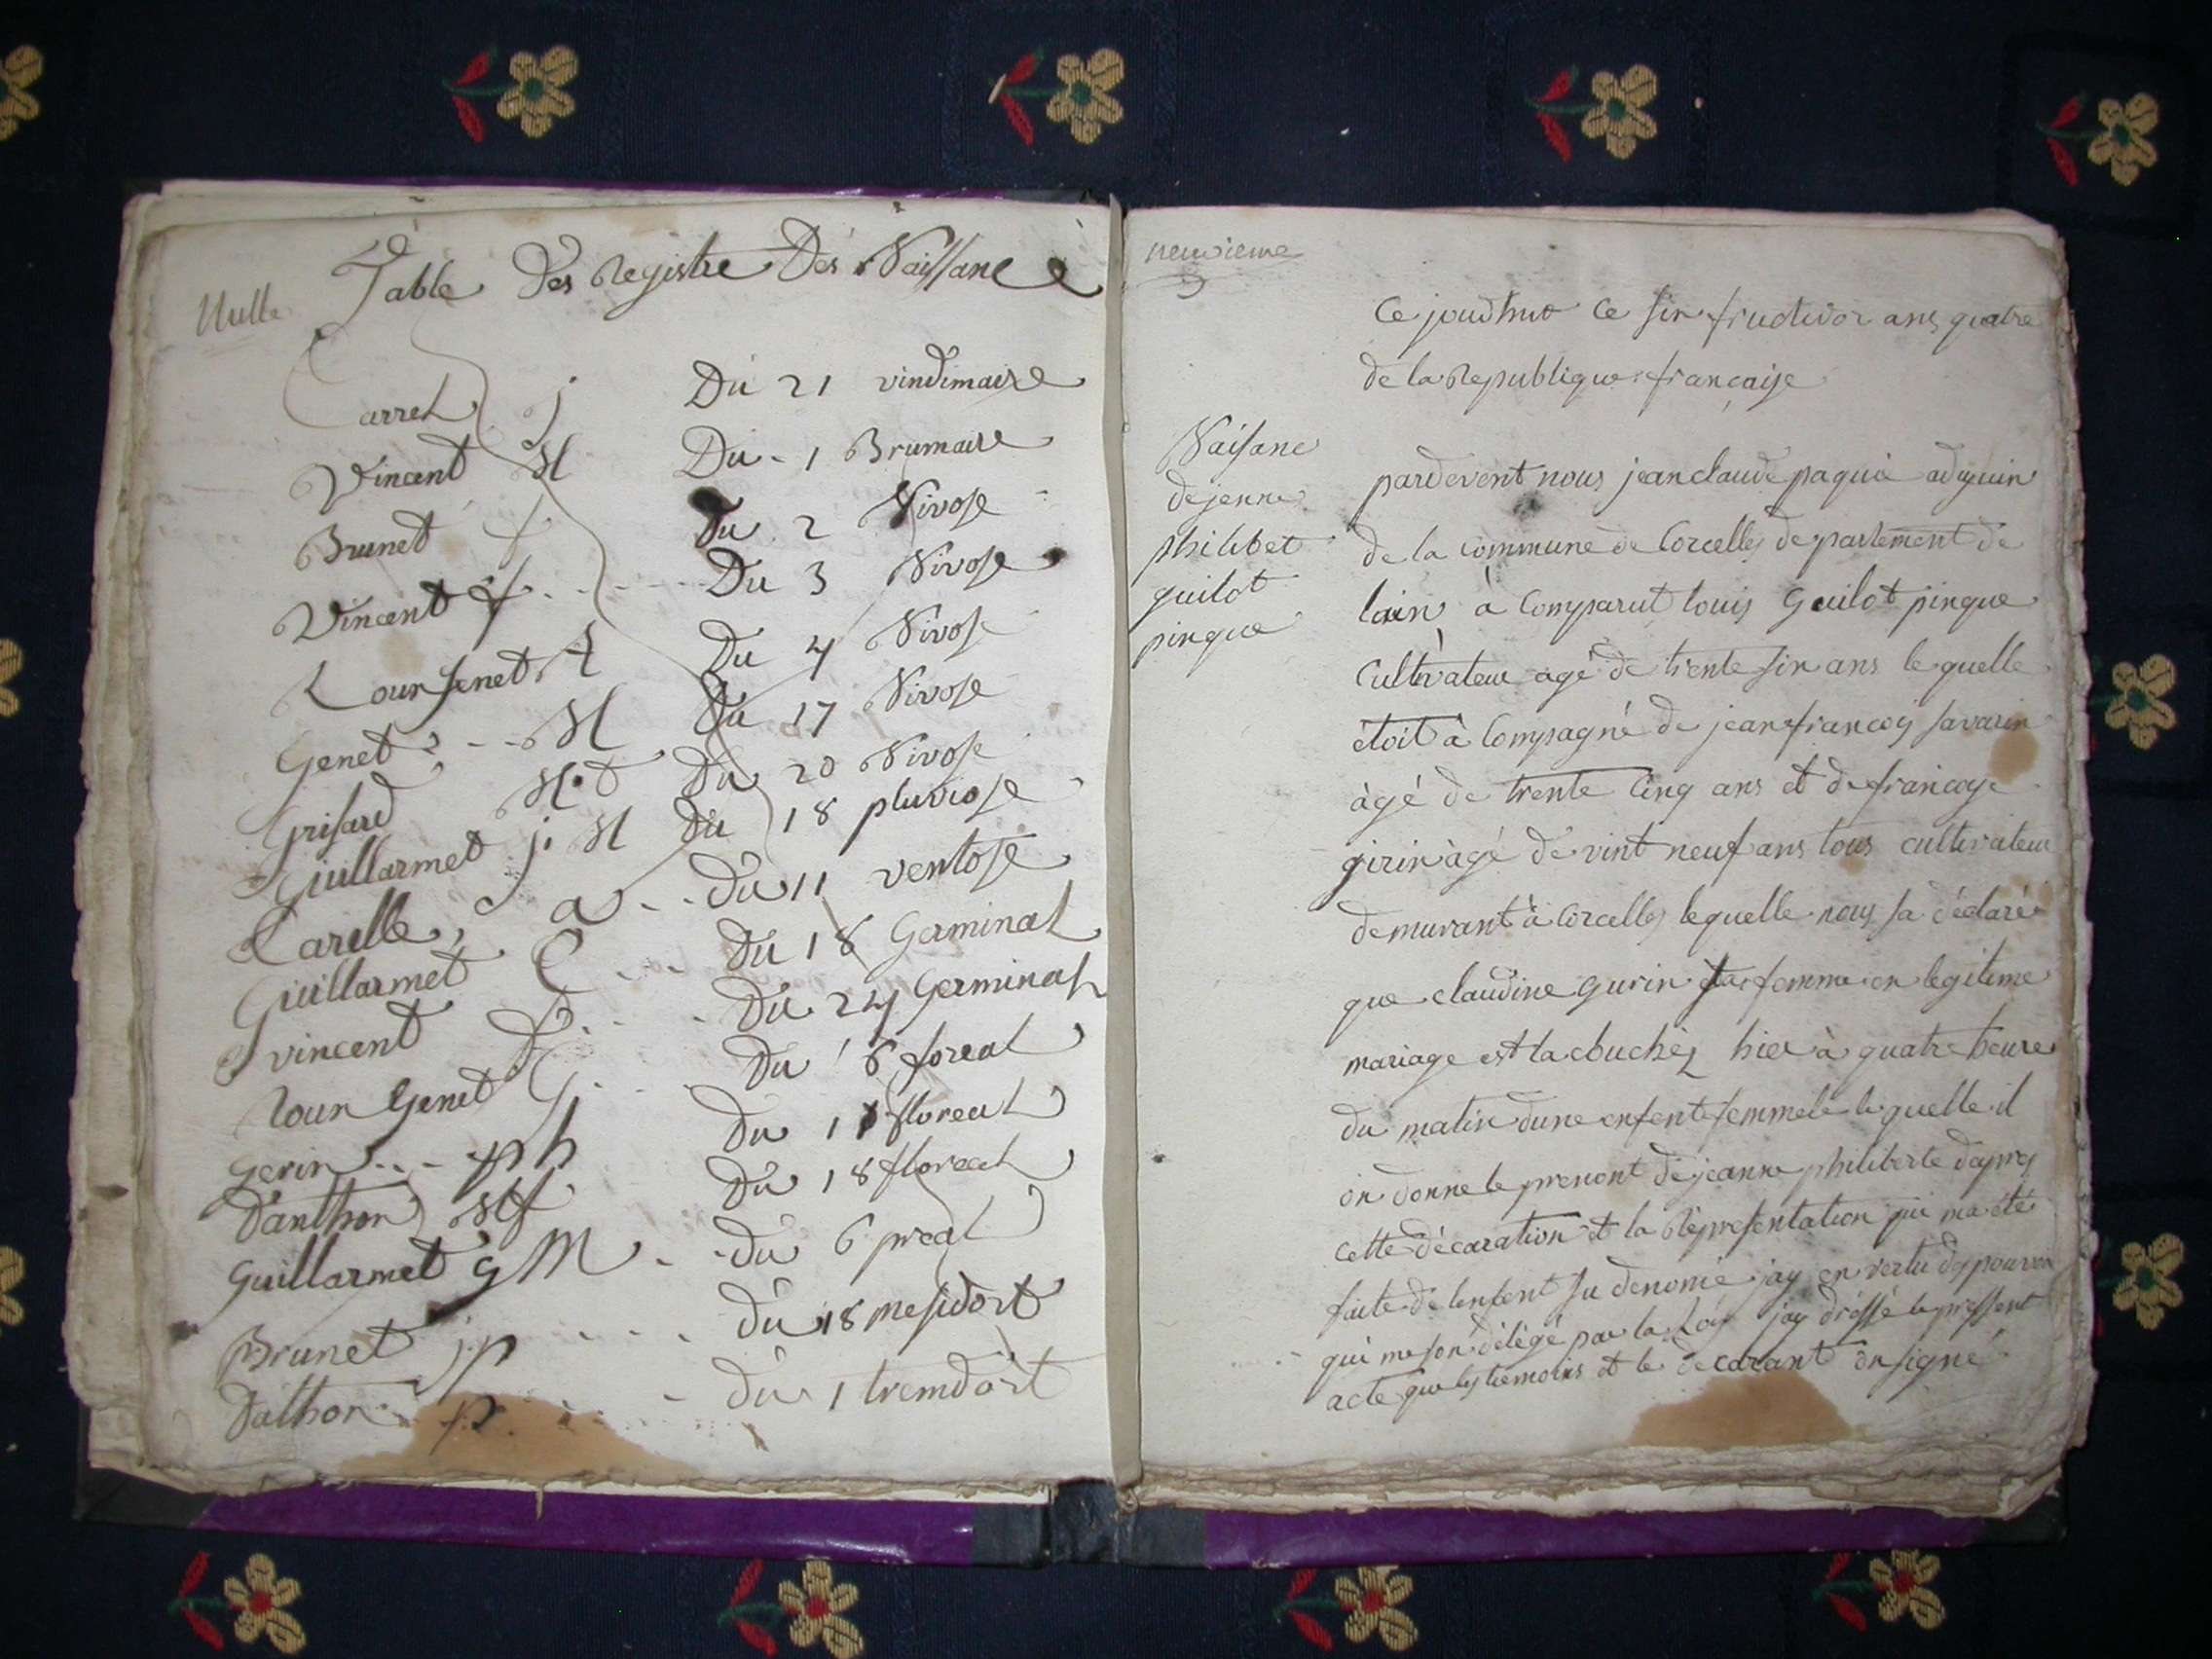 Nulle
Table des Registre Des Naissance
Carrel j Du 21 vindimaire
Vincent M Du 1 Brumaire
Brunet f Du 2 Nivose
Vincent f Du 3 Nivose
Du 4 Nivose
Genet M Du 17 Nivose
Grisard M Du 20 Nivose
Guillarmet j M Du 18 pluviose
Carelle a du 11 ventose
Guillarmet C Du 18 Germinal
vincent Du 24 Germinal
Tour Genet G Du 6 floreal
Gerin ph Du 11 floreal
Danthon Mf Du 18 floreal
Guillarmet g M du 6 preal
Brunet j p du 18 mesidort
Dathon p du 1 tremdort
neuvieme
9
Ce jourdhuo Ce six fructidor ans quatre
de la Republique française
Naisanc
de jenne
philibet
guilot
pingue
pardevent nous jean claude paquie adjuin
de la commune de Corcelles departement de
lain à Comparut louis Guilot pingue
Cultivateur agé de trente six ans le quelle
étoit à Compagné de jean francois savarin
àgé de trente Cinq ans et de francoye
girin àgé de vint neuf ans tous cultivateur
demurant à Corcelles lequelle nous sa déclaré
que claudine gurin sa femme en legitime
mariage est lacbuchéz hier à quatre heure
du matin dune enfente femmele le quelle il
on donne le prenont de jeanne philiberte dapres
cette décaration et la Representation qui ma été
faite de lenfent su denomé jay en vertu des pouvoir
qui me son délégé par la Loy jay dréssé le pressent
acte que les temoins et le decarant on signé